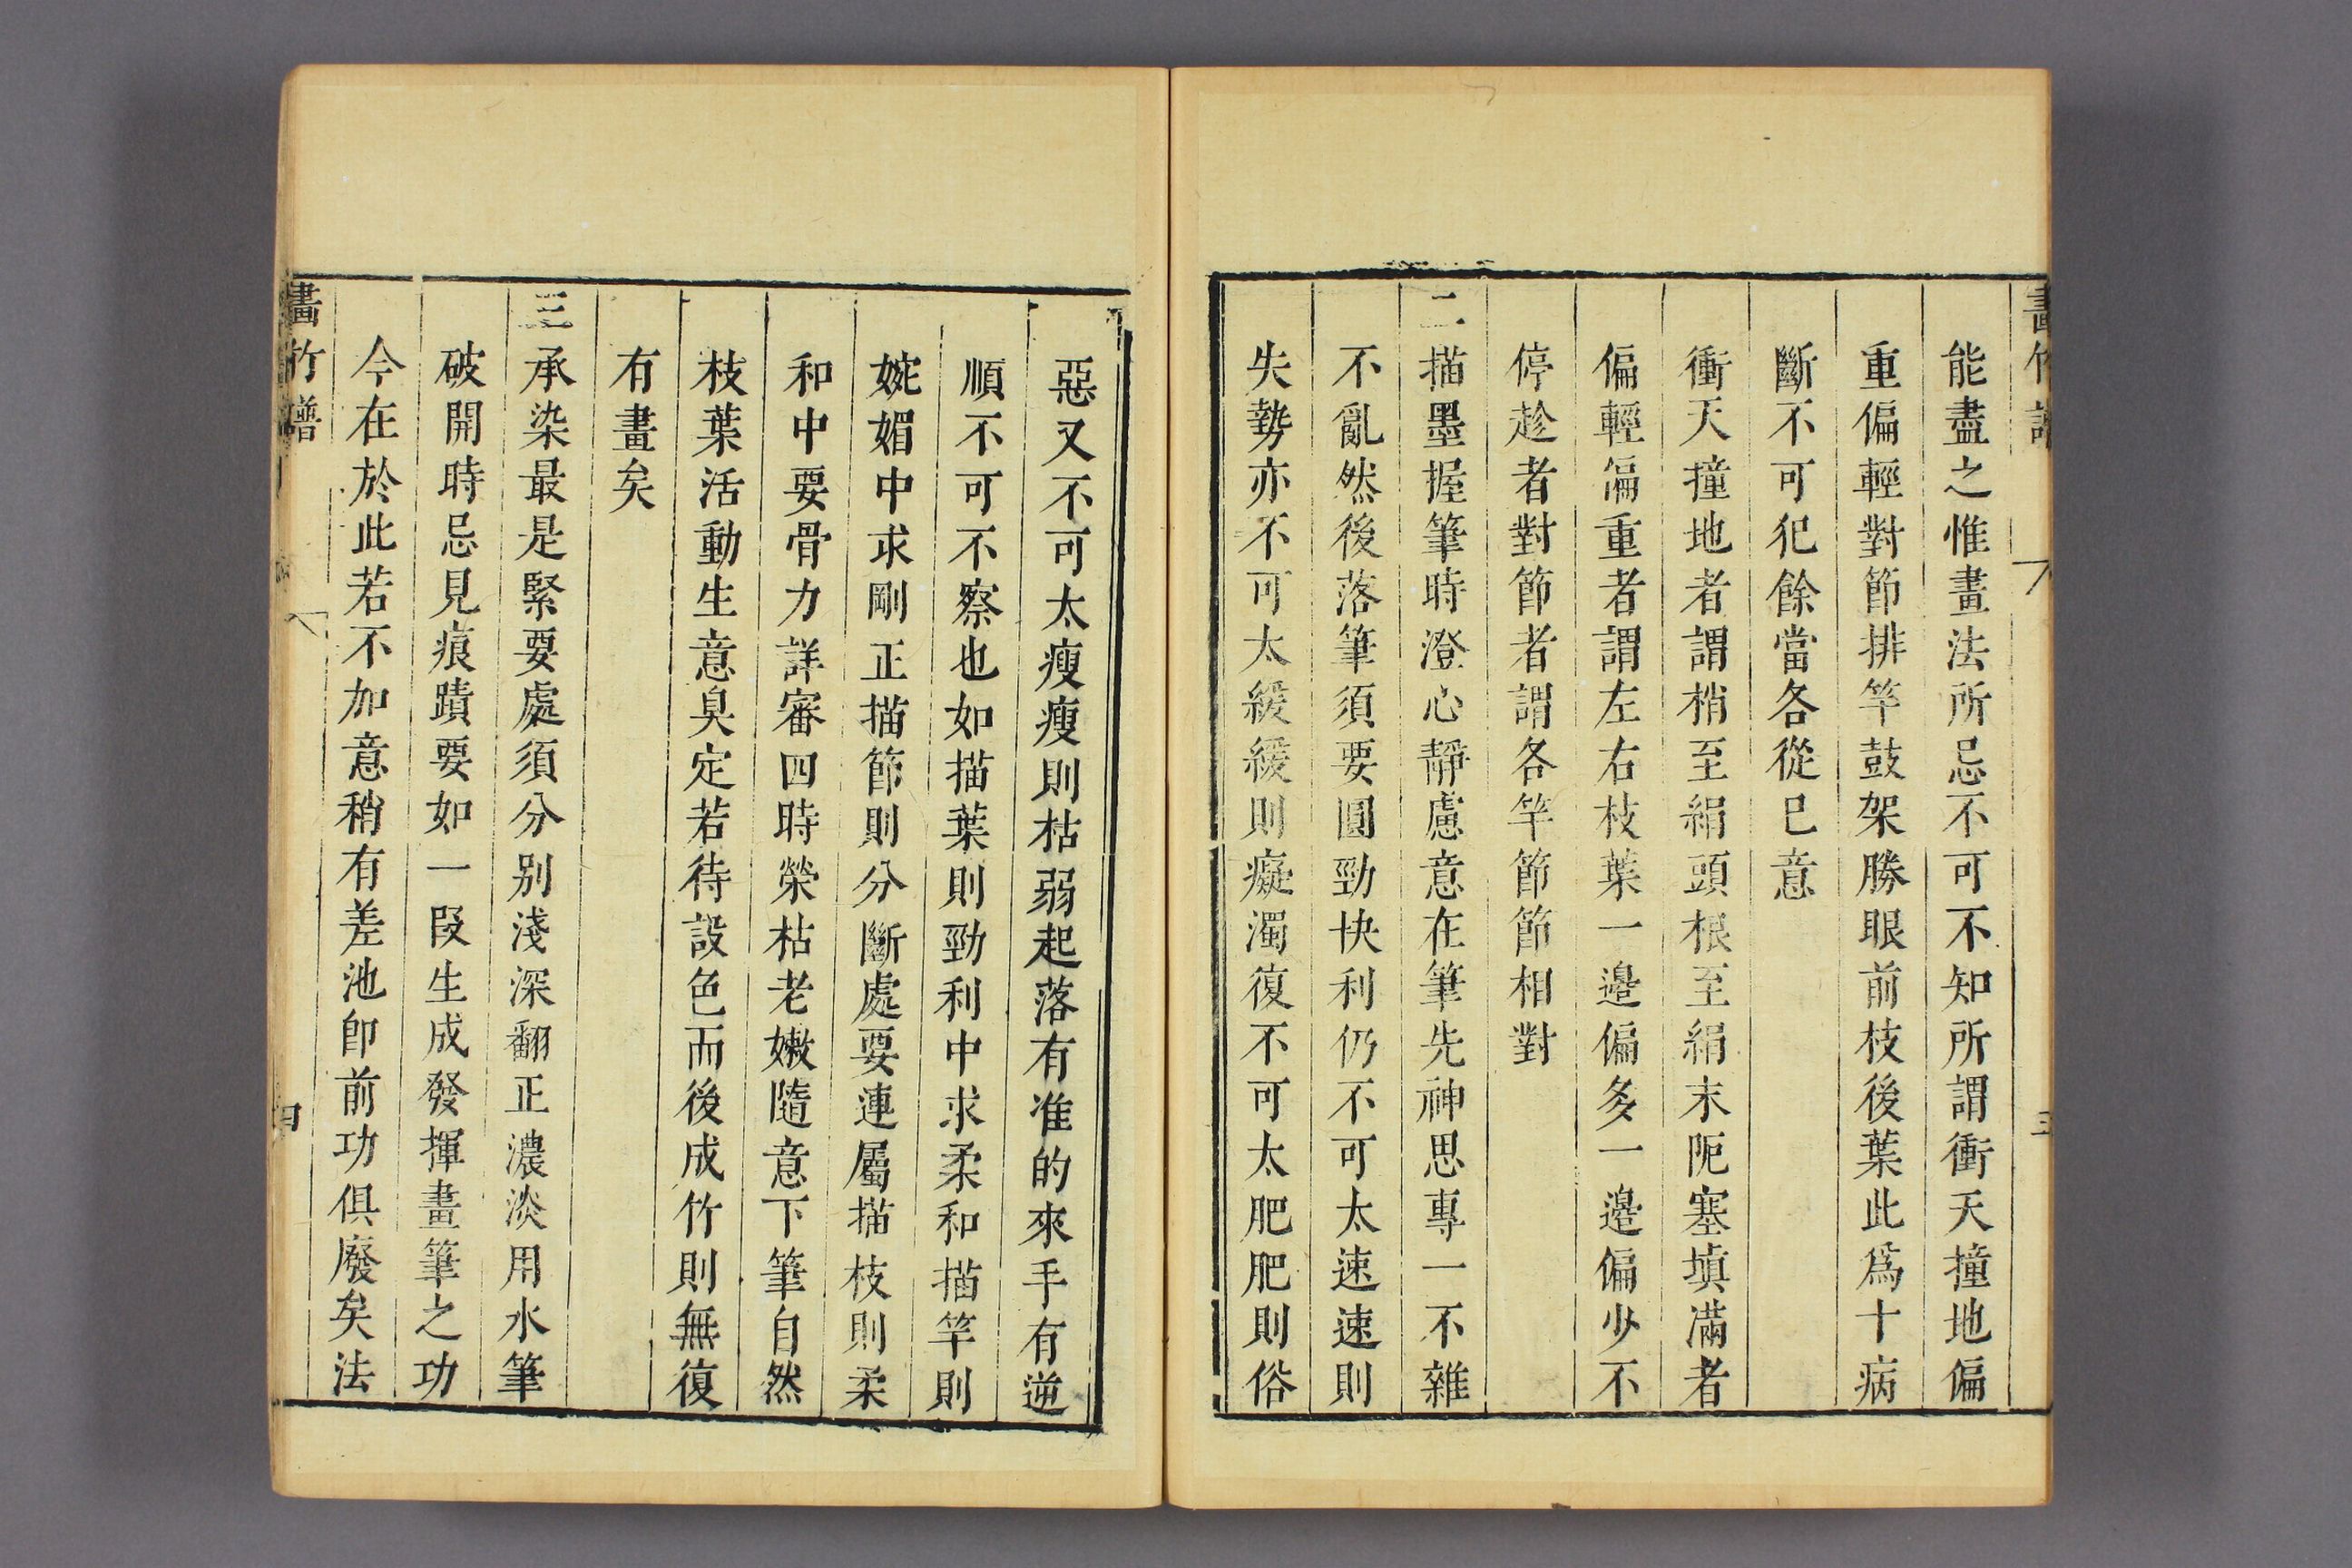 能盡之惟畫法所忌不可不知所謂衝天撞地偏
重偏輕對節排竿鼓架勝眼前枝後葉此爲十病
斷不可犯餘當各從已意
衝天撞地者謂梢至絹頭根至絹末阨塞填滿者
偏輕偏重者謂左右枝葉一邉偏多一邉偏少不
停趁者對節者謂各竿節節相對
二描墨握筆時澄心靜慮意在筆先神思專一不雜
不亂然後落筆須要圓勁快利仍不可太速速則
失勢亦不可太緩緩則癡濁復不可太肥肥則俗
惡又不可太瘦瘦則枯弱起落有准的來手有逆
順不可不察也如描葉則勁利中求柔和描竿則
婉媚中求剛正描節則分斷處要連屬描枝則柔
和中要骨力詳審四時榮枯老嫩隨意下筆自然
枝葉活動生意具定若待設色而後成竹則無復
有畫矣
三承染最是緊要處須分别淺深翻正濃淡用水筆
破開時忌見痕蹟要如一段生成發揮畫筆之功
今在於此若不加意稍有差池卽前功俱廢矣法
畫竹譜
四